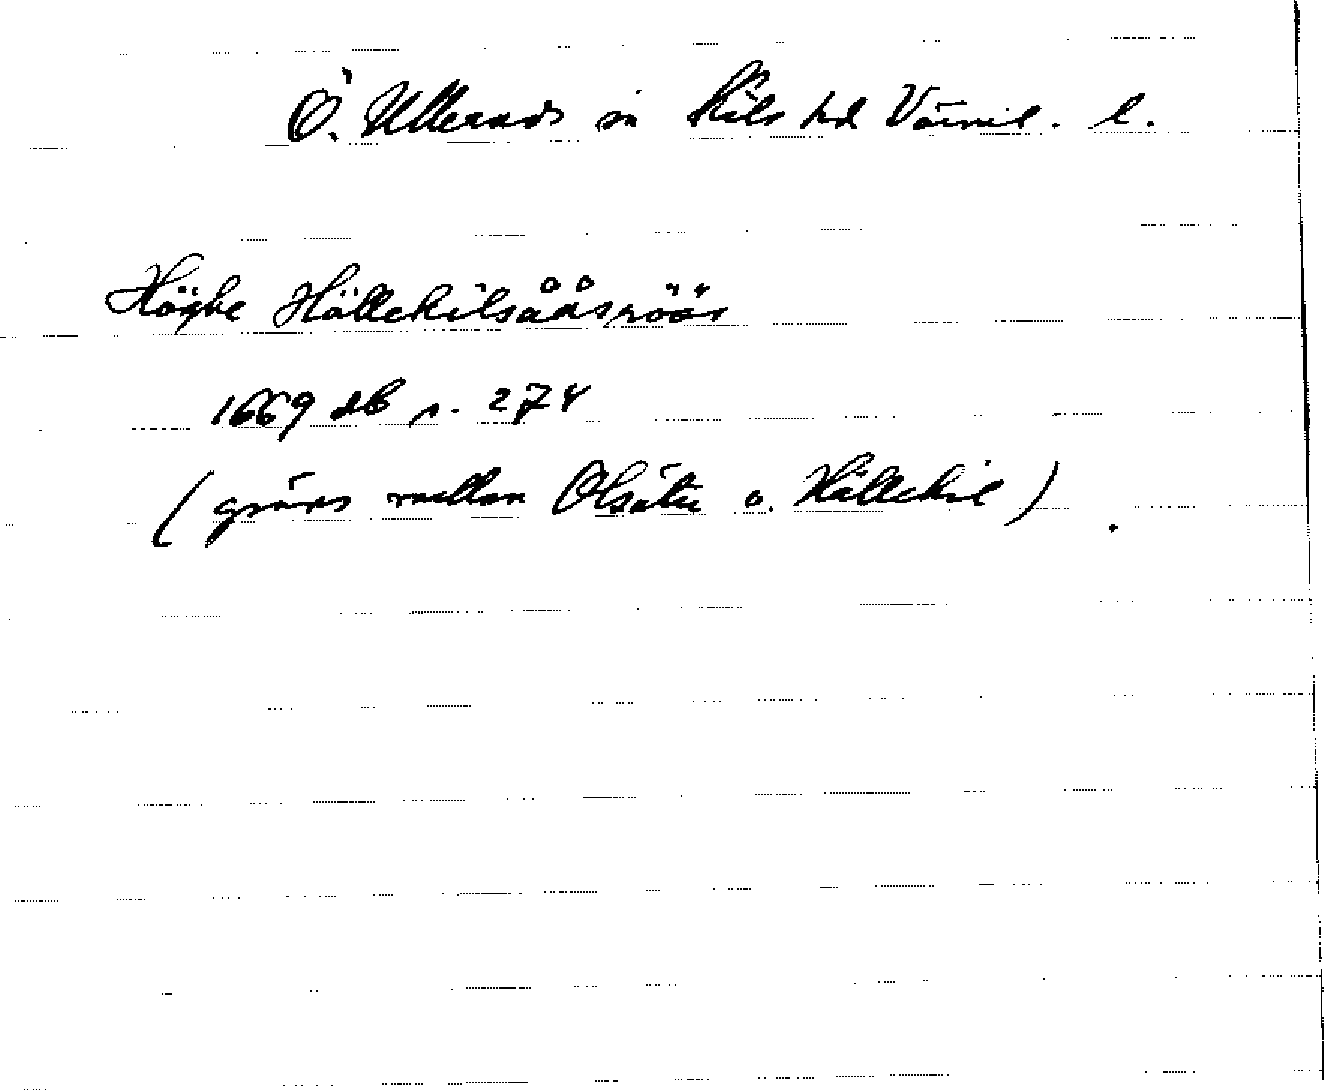 Ö. Ulleruds sn Kils hd Värml. l.
Högbe Hällekilsååsröös
1669 db s. 274
(gräns mellan Olsäter o. Hällekil).